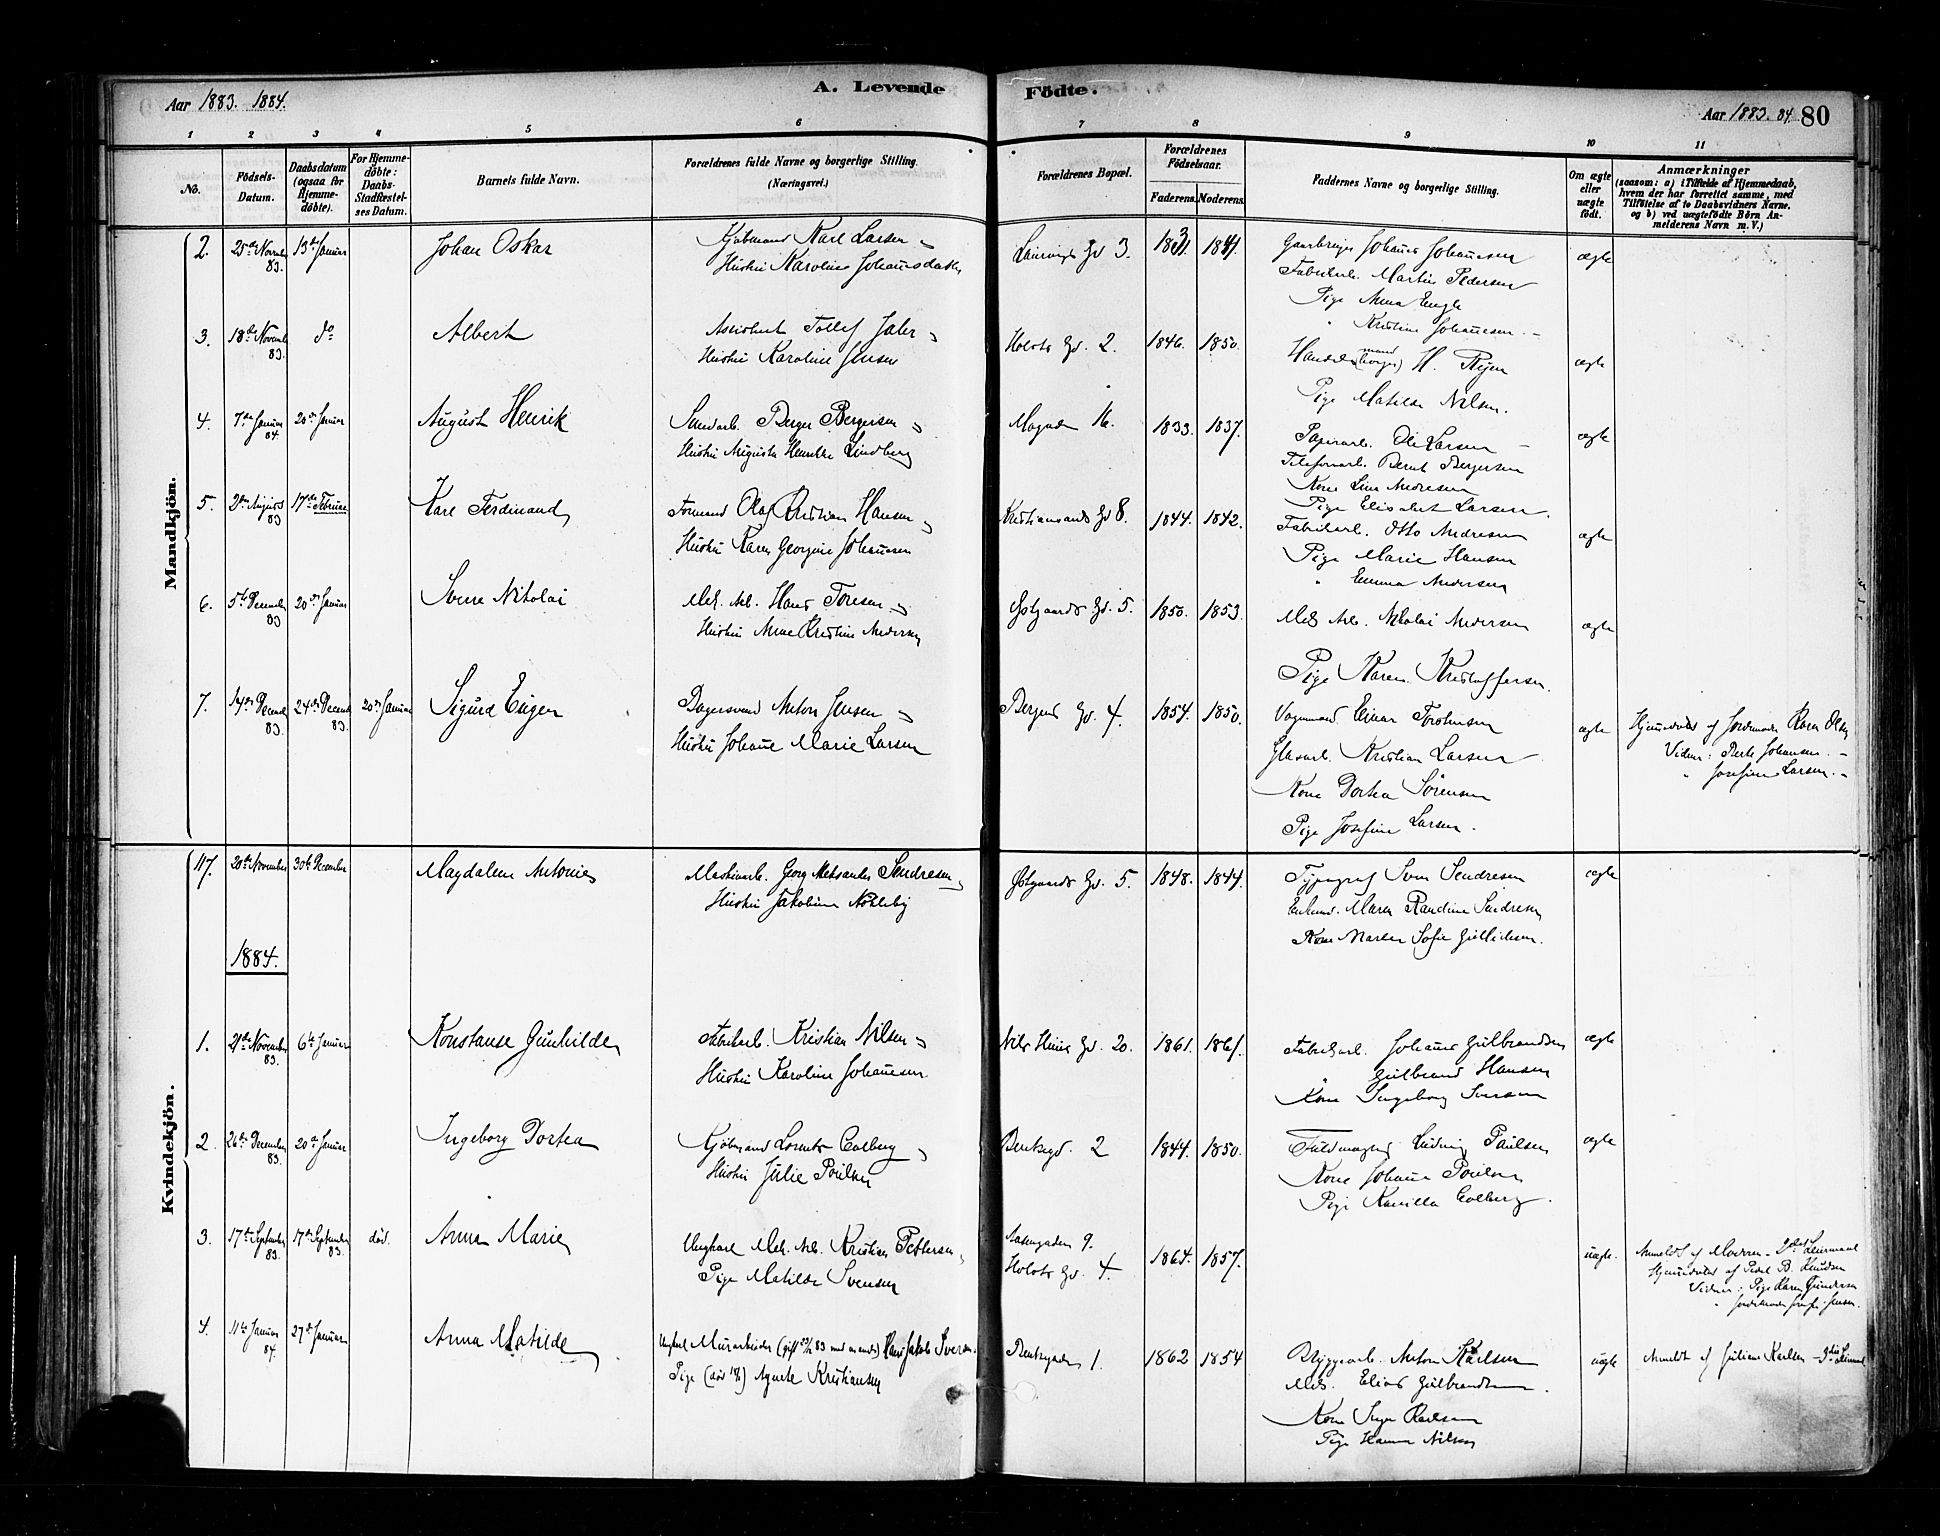 Aar 1883. 1884.
A. Levende
Födte.
Aar 1883. 84. 80
1 2 3 4 5 6 7 8 9 10 11
No.
Födsels-
Datum.
Daabsdatum
(ogsaa for
Hjemme-
döbte).
For Hjemme-
döbte:
Daabs-
Stadfæstel-
ses Datum.
Barnets fulde Navn.
Forældrenes fulde Navne og borgerlige Stilling.
(Næringsvei.)
Forældrenes Bopæl.
Forældrenes
Födselsaar.
Faderens. Moderens.
Faddernes Navne og borgerlige Stilling.
Om ægte
eller
uægte
födt.
Anmærkninger
(saasom: a) i Tilfælde af Hjemmedaab,
hvem der har forrettet samme, med
Tilföielse af to Daabsvidners Navne.
og b) ved uægtefödte Börn An-
melderens Navn m. V.)
Mandkjön.
2. 25de Novembr 83. 13de Januar
Johan Oskar
Kjöbmand Karl Larsen
Hustru Karoline Johansdatter
Gd 3.
Johannes Johannesen
Fabrikarb. Martin Pedersen
Pige Anna Engh
" Kristine Johannesen
ægte
3. 18de Novembr 83. do
Albert
Assistent Tollef
Hustru Karoline Jensen
Holsts Gd. 2. 1846. 1850.
H.
Pige Matilde Nilsen.
ægte
4. 7de Januar 84. 20de Januar
August Henrik
Berger Bergersen
Hustru Augusta Henrikke Lindberg
16. 1833. 1837.
Papirarb. Ole Larsen
Telefonarb. Bernt Bergersen
Kone Lina Andresen
Pige Elisabet Larsen.
ægte
5. 2den August 83 17de Februar
Karl Ferdinand
Formand Olaf Kristian Hansen
Hustru Karen Georgine Johannesen
Kristiansands Gd 8. 1844. 1842.
Fabrikarb. Otto Andresen
Pige Marie Hansen
" Emma Andersen
ægte
6. 5te Decembr 83 20de Januar
Sverre Nikolai
Mek. Arb. Hans Toresen
Hustru Anne Kristine Andersen
Östgaards Gd. 5. 1850. 1853.
Mek Arb. Nikolai Andersen
Pige Karen Kristoffersen.
ægte
7. 14de Decembr 83. 24de Decembr 83. 20de Januar
Sigurd Eugen
Bagersvend Anton Jensen
Hustru Johanne Marie Larsen
Bergens Gd. 4. 1854. 1850.
Vognmand Einar Torstensen
Glasarb. Kristian Larsen
Kone Dortea Sörensen
Pige Josefine Larsen.
ægte
Hjemmedöbt af Jordmoder Karen Olsen
Vidner: Berte Johansen.
" Josefine Larsen.
Kvindekjön.
117. 20de November 30te December
Magdalene Antonie
Maskinarb. Georg Aleksander Sendresen
Hustru Jakobine
Östgaards Gd. 5. 1848. 1844.
Typograf Sven Sendresen
Enkemd. Maren Randine Sendresen
Kone Maren Sofie Gullichsen.
ægte
1884.
1. 21de November 83. 6te Januar
Konstanse Gunhilde
Fabrikarb. Kristian Nilsen
Hustru Karoline Johannesen
Nils Gd. 20. 1861. 1861.
Fabrikarb. Johannes Gulbrandsen
" Gulbrand Hansen
Kone Ingeborg Svensen
ægte
2. 26de December 83. 20de Januar
Ingeborg Dortea
Kjöbmand Lorents Colberg
Hustru Julie Poulsen
Bentsegd. 2 1844. 1850.
Fuldmægtig Ludvig Paulsen
Kone Johanne Poulsen
Pige Kamilla Colberg.
ægte
3. 17de September 83. 17de September 83. död.
Anna Marie
Ungkarl Mek. Arb. Kristian Pettersen
Pige Matilde Svensen
9.
Holsts Gd. 4. 1864. 1857.
uægte.
Anmeldt af Moderen
Hjemmedöbt af B. Knudsen
Vidner: Pige Karen Gundersen
4. 11te Januar 84. 27de Januar
Anna Matilde
Ungkarl Murarbeider (gift 23/12 83 med anden) Hans Jakob Iversen.
Pige (död) Agnete Kristiansen
Bentsegaden 1. 1862 1854
Bryggearb. Anton Karlsen
Mek. Elias Gulbrandsen.
Kone Inga Karlsen
Pige Hanna Nilsen
uægte
Anmeldt af Juliane Karlsen